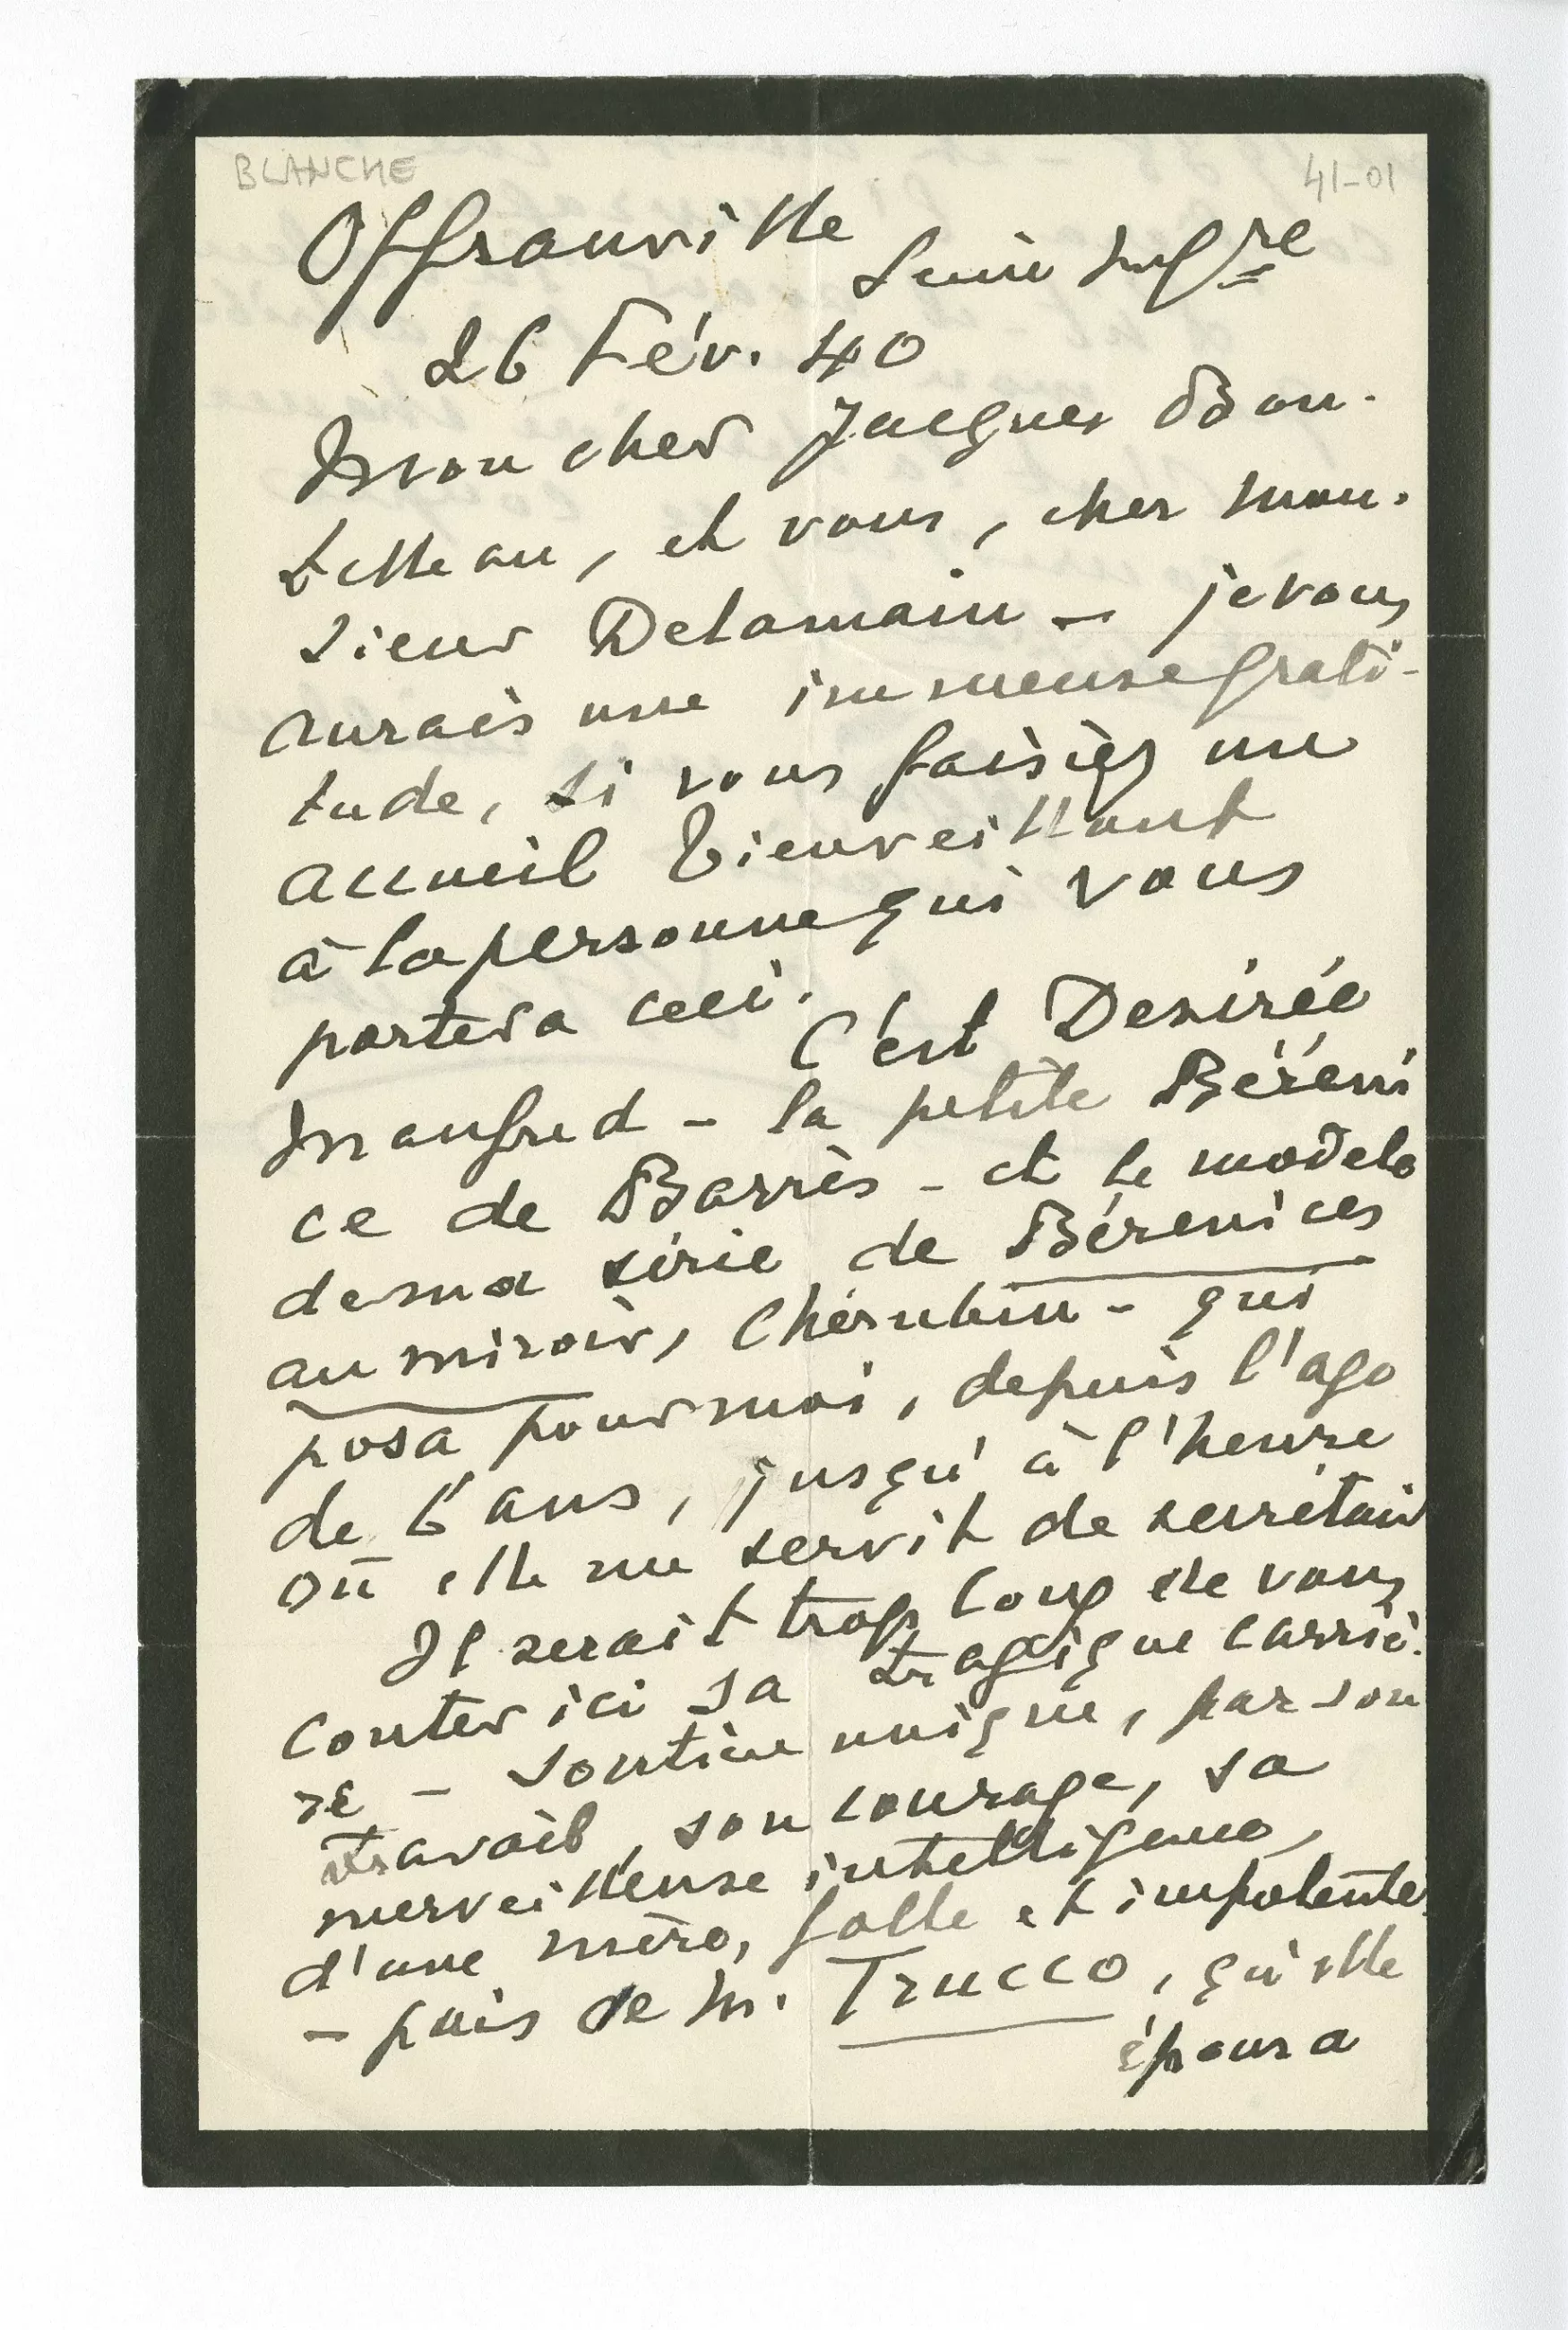 BLANCHE
41-01
Offranville
Seine Infre
26 Fév. 40
Mon cher Jacques Bou-
telleau, et vous, cher Mon-
sieur Delamain - je vous
aurais une immense grati-
tude, si vous faisiez un
accueil bienveillant
à la personne qui vous
portera ceci.
C'est Desirée
Manfred - la petite Béréni
ce de Barrès - et le modele
de ma série de Bérénices
au miroir, Chérubin - qui
posa pour moi, depuis l'age
de 6 ans, jusqu'à l'heure
où elle me servit de secrétair
Il serait trop long de vous
conter ici sa tragique carriè-
re - soutien unique, par son
travail, son courage, sa
merveilleuse intelligence,
d'une mère, folle et impotente
- puis de M. Trucco, qu'elle
épousa